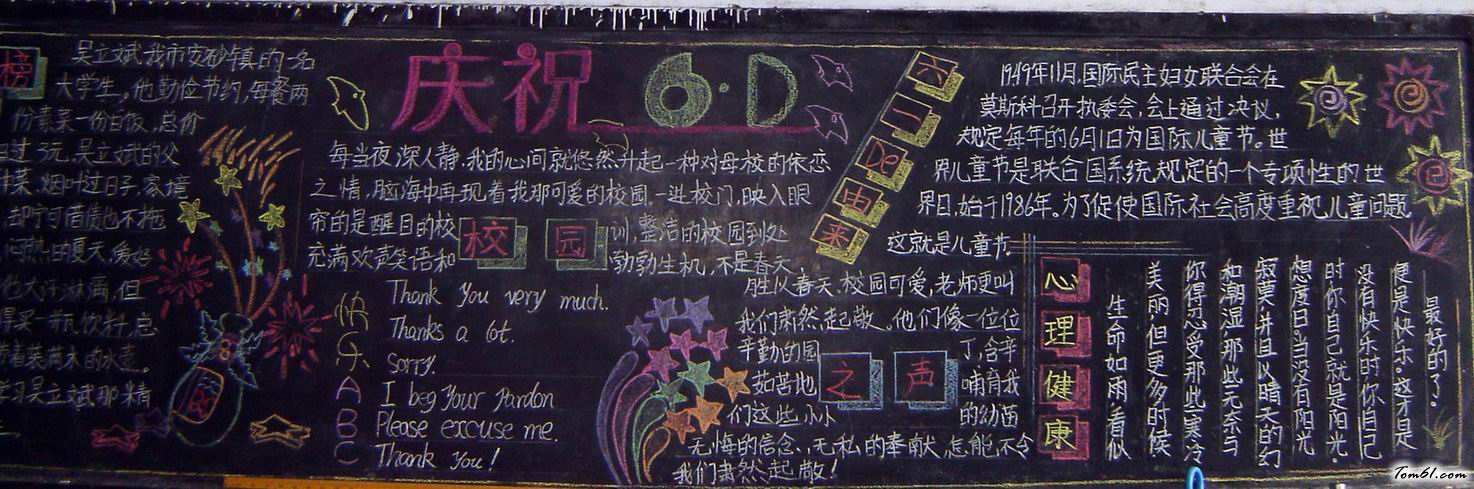 榜
吴立斌我市安砂镇的一名
大学生。他勤俭节约,每餐两
份素菜一份白饭,总价
过3元,吴立斌的父
菜、烟叶过日子,家境
的夏天,爱好
他大汗淋漓,但
得买一瓶饮料,总
带着装满水的水壶。
学习吴立斌那精
庆祝 6·D
每当夜深人静,我的心间就悠然升起一种对母校的依恋
之情,脑海中再现着我那可爱的校园。一进校门,映入眼
帘的是醒目的校
训,整洁的校园到处
充满欢声笑语和
勃勃生机,不是春天,
胜似春天。校园可爱,老师更叫
我们肃然起敬。他们像一位位
辛勤的园
丁,含辛
茹苦地
哺育我
们这些小小
的幼苗
无悔的信念、无私的奉献,怎能不令
我们肃然起敬!
校园
之声
快乐ABC
Thank you very much.
Thanks a lot.
Sorry.
I beg your pardon
Please excuse me.
Thank you!
六一De由来
1949年11月,国际民主妇女联合会在
莫斯科召开执委会,会上通过决议,
规定每年的6月1日为国际儿童节。世
界儿童节是联合国系统规定的一个专项性的世
界日,始于1986年。为了促使国际社会高度重视儿童问题,
这就是儿童节。
心理健康
生命如雨,看似
美丽,但更多时候
你得忍受那些寒冷
和潮湿,那些无奈与
寂寞,并且以晴天的幻
想度日。当没有阳光
时,你自己就是阳光。
没有快乐时,你自己
便是快乐。这才是
最好的了。
Tom61.com